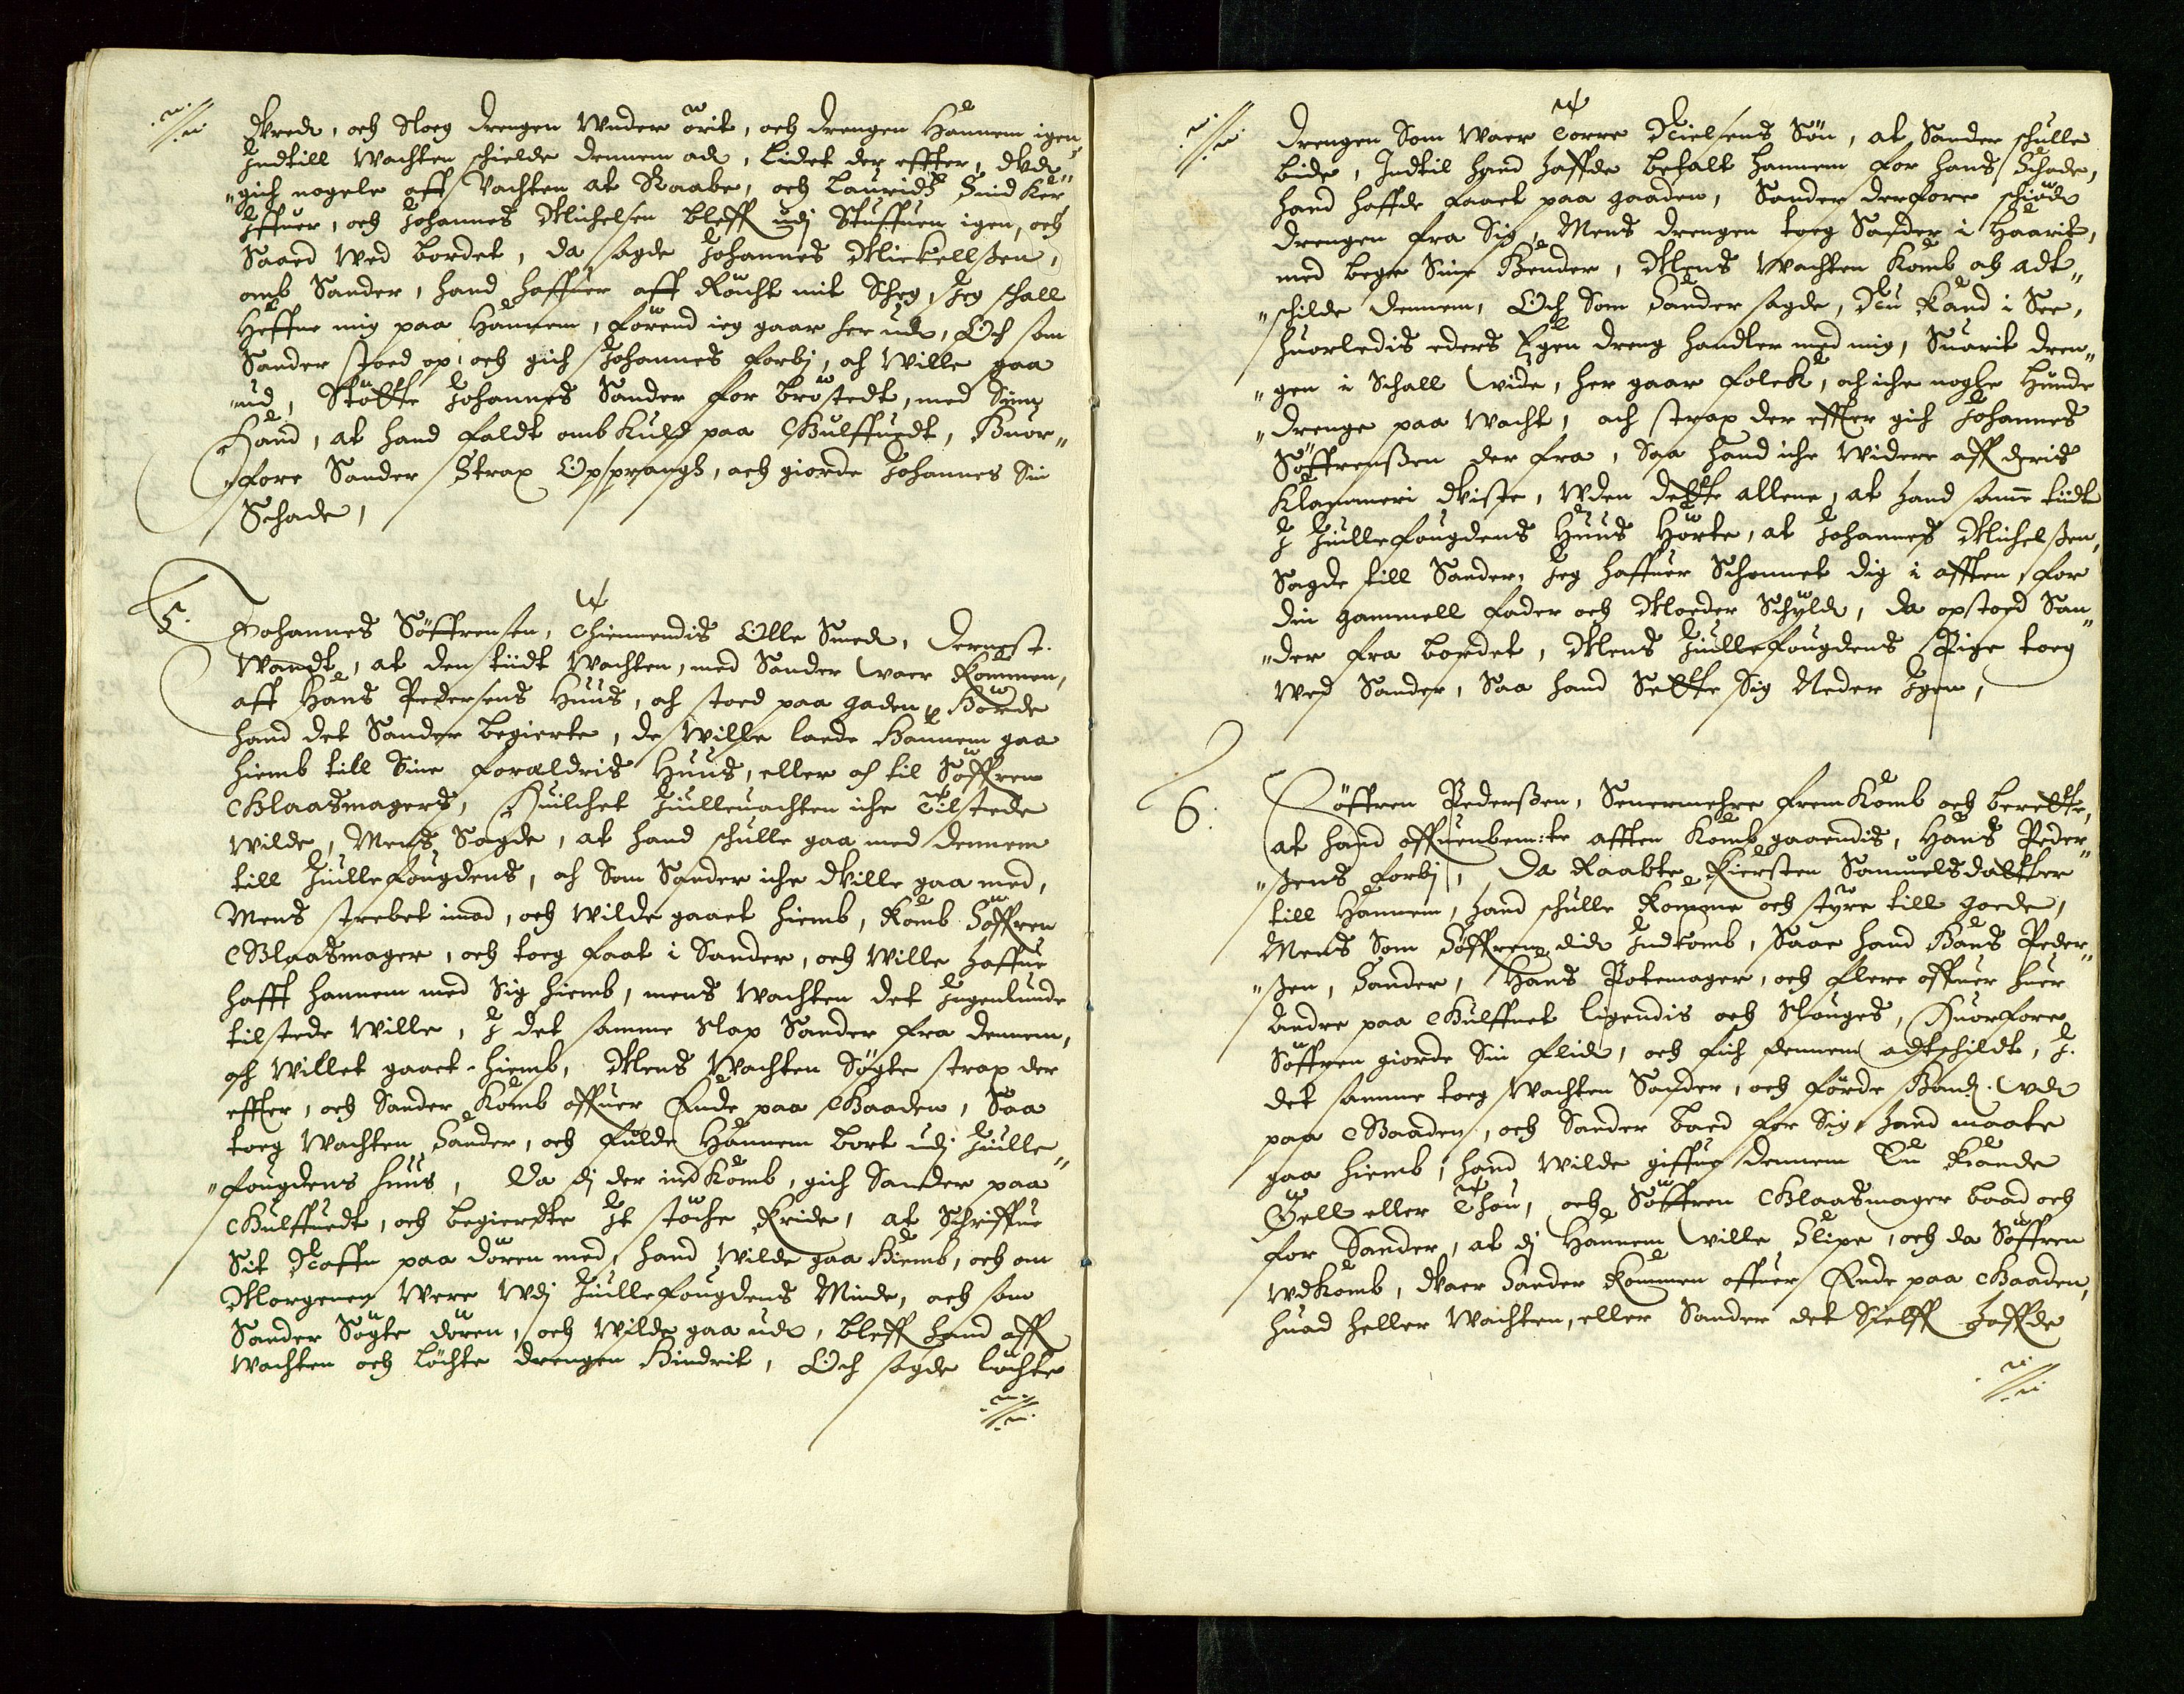 Vrede, och Slog drengen Wnder örit, och drengen Hannem igen,
Indtill Wachten schielde dennem ad, Lidet der effter, Vdt
"gich nogele aff Vachten at Raabe, och Lauridtz Snidker
Iffuer, och Johannes Michelsen bleff udj Stuffuen igen, och
Saad Wed bordet, da sagde Johannes Mickellßen,
omb Sander, hand haffuer aff Röcht mit Scheg, Jeg schall
Heffne mig paa Hannem, förend ieg gaar her ud, Och som
Sander stoed op, och gich Johannes forbj, och Wille gaa
"ud, Stötte Johannes Sander for bröstedt, med Sinn
Haand, at hand faldt omb kuld paa Gulffuedt, Huor"
"fore Sander Strax Opsprangh, och giorde Johannes Sin
Schade,
5. Johannes Söffrensen, Thiennendis Olle Smed, Dernest
Wandt, at den tiidt Wachten, med Sander waer kommen,
aff Hans Pedersens Huus, och stoed paa gaden, Hörde
hand det Sander begierte, de Wille lade Hannem gaa
hiemb till Sine foreldris Huus, eller och til Söffren
Glaasmagers, Huilchet Juulleuachten iche Tilstede
wilde, Mens Sagde, at hand schulle gaa med dennem
till Juullefougdens, och Som Sander iche Wille gaa med,
Mens strebet imod, och Wilde gaaet hiemb, komb Söffren
Glaasmager, och toeg faat i Sander, och Wille haffue
hafft hannem med Sig hiemb, mens Wachten det Ingenlunde
tilstede Wille, I det samme Slap Sander fra dennem,
och Willet gaaet hiemb, Mens Wachten Sögte strax der
effter, och Sander komb offuer Ende paa Gaaden, Saa
toeg Wachten Sander, och fulde Hannem bort udj Juulle"
"fougdens huus, Da di der ind komb, gich Sander paa
Gulffuedt, och begierdte It Stöche Kride, at Schriffue
Sit Naffn paa dören med, hand Wilde gaa Hiemb, och om
Morgenen Were Wdj Juullefougdens Minde, och som
Sander Sögte dören, och Wilde gaa ud, bleff hand aff
Wachten och Löchte drengen Hindrit, Och sagde löchte
drengen Som Waer Torre Nielsens Sön, at Sander schulle
bide, Indtil hand haffde betalt hannem for hans Schade,
hand haffde faaet paa gaaden, Sander derfore schiödt
drengen fra Sig, Mens drengen toeg Sander i Haarit,
med begge Sine Hender, Mens Wachten komb och adt"
"schilde dennem, Och Som Sander sagde, Nu kand i See,
huorledis eders Egen dreng handler med mig, Suarit dren"
"gen i Schall wide, her gaar folck, och iche noghe Hunde
"drenge paa Wacht, och strax der effter gich Johannes
Söffrenßen der fra, Saa hand iche Widere aff deris
Klammeri Viste, Wden dette allene, at hand samme tiidt
I Juullefougdens Huus Hörte, at Johannes Michelßen,
Sagde till Sander, Jeg haffuer Schonnet dig i afften, for
din gammell fader och Moeder Schyld, da opstoed San"
"der fra bordet, Mens Juullefougdens Pige toeg
Wed Sander, Saa hand Sette Sig Neder Igen,
6. Söffren Pederßen, Ydermehre frem komb och berette,
at hand offuenbem:te afften komb gaaendis, Hans Peder"
"ßens forbj, Da Raabte Kiersten Samuelsdaatter
till Hannem, hand schulle komme och styre till goede,
Mens Som Söffren did Indkomb, Saae hand Hans Peder"
"ßen, Sander, Hans Potemager, och flere offuer huer
Andre paa Gulffuet ligendis och Slouges, Huorfore
Söffren giorde Sin flidt, och fich dennem adtschildt, I
det samme toeg Wachten Sander, och förde Hand: wd
paa Gaaden, och Sander baed for Sig, hand maatte
gaa hiemb, hand Wilde giffue dennem Tu kande
Öell eller Thou, och Söffren Glaasmager baad och
for Sander, at dj Hannem wille Slipe, och da Söffren
wdkomb, Waer Sander kommen offuer Ende paa Gaaden,
huad heller Wachten, eller Sander det Sielff haffde